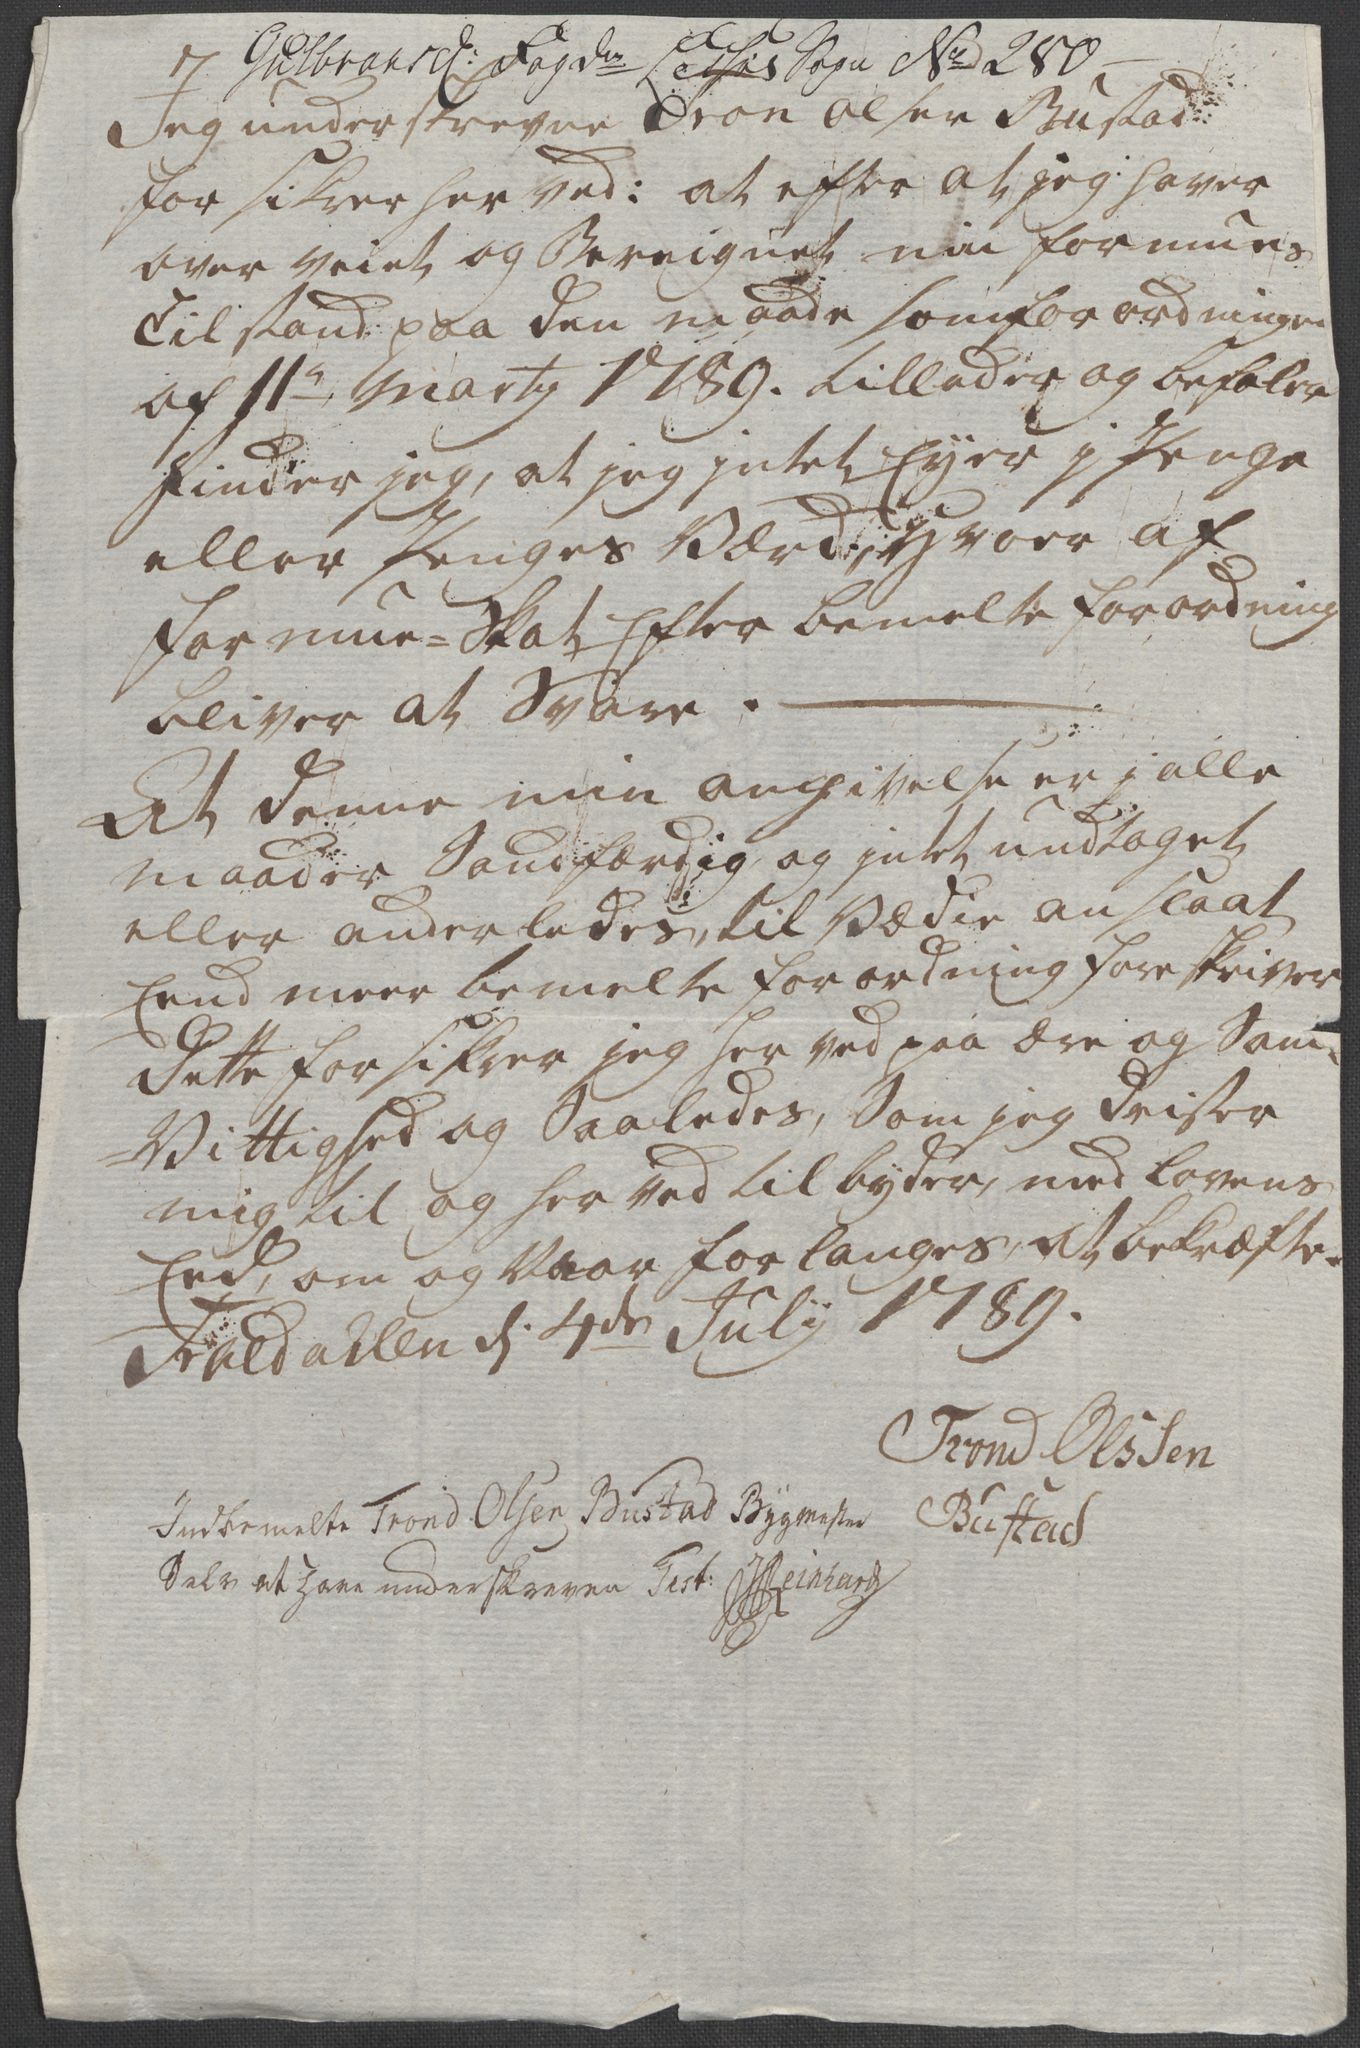 7 Gulbransd: Fogdr: Lessøe Sogn No 280
Jeg underskrevne Tron olsen Bustad
for sikrer her ved: at efter at jeg haver
over veiet og Bereignet min formues
Tilstand paa den maade som forordningen
af 11te Marty 1789. tillader og befaler
finder jeg, at jeg intet Ejer i Penge
eller Penges Værd, Hvorr af
formue=Skat Efter bemelte forordning
bliver at Svare.
At denne min angivelse er i alle
maader Sandfærdig og intet undtaget
eller anderledes, til Vædie anslaat
End meer bemelte forordning foreskriver
Dette forsikrer jeg her ved paa ære og Sam=
=Vittighed og Saaledes, Som jeg drister
mig til og her ved tilbyder, med lovens
Eed, om og Vaar forlanges, at bekræfte.
d. 4de July 1789.
Trond Olssen
Bustad
Indbemelte Trond Olsen Bustad Bygmester
Selv at have underskreven Test: Reinhardt